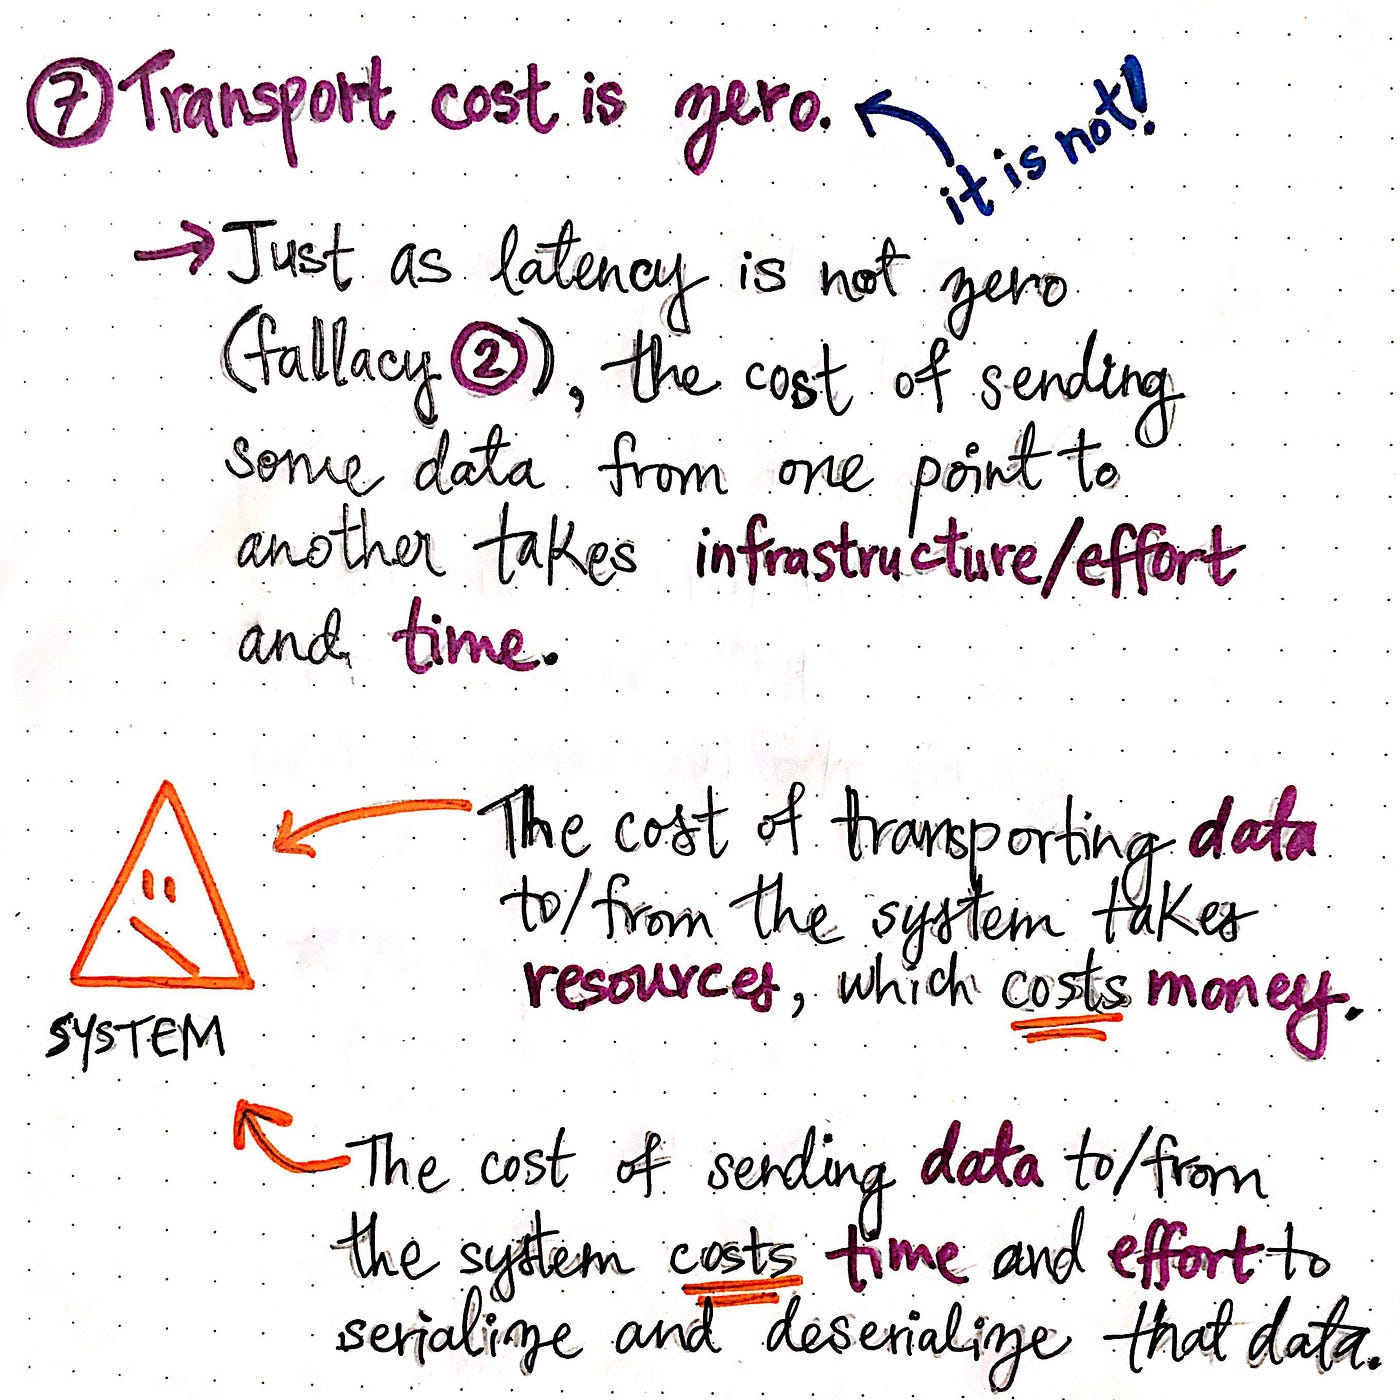 7 Transport cost is zero.
it is not!
→ Just as latency is not zero
(fallacy 2), the cost of sending
some data from one point to
another takes infrastructure/effort
and time.
The cost of transporting data
to/from the system takes
resources, which costs money.
SYSTEM
The cost of sending data to/from
the system costs time and effort to
serialize and deserialize that data.